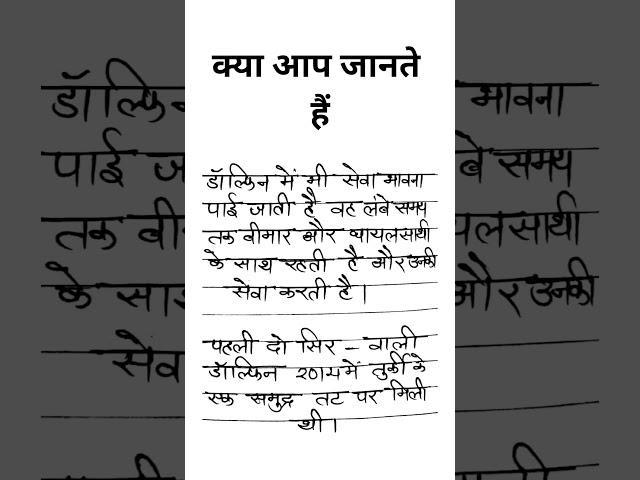 क्या आप जानते
हैं
डॉल्फिन में भी सेवा भावना
पाई जाती है वह लंबे समय
तक बीमार और घायल साथी
के साथ रहती है और उनकी
सेवा करती है।
पहली दो सिर – वाली
डॉल्फिन २०१४ में तुर्की के
एक समुद्र तट पर मिली
थी।